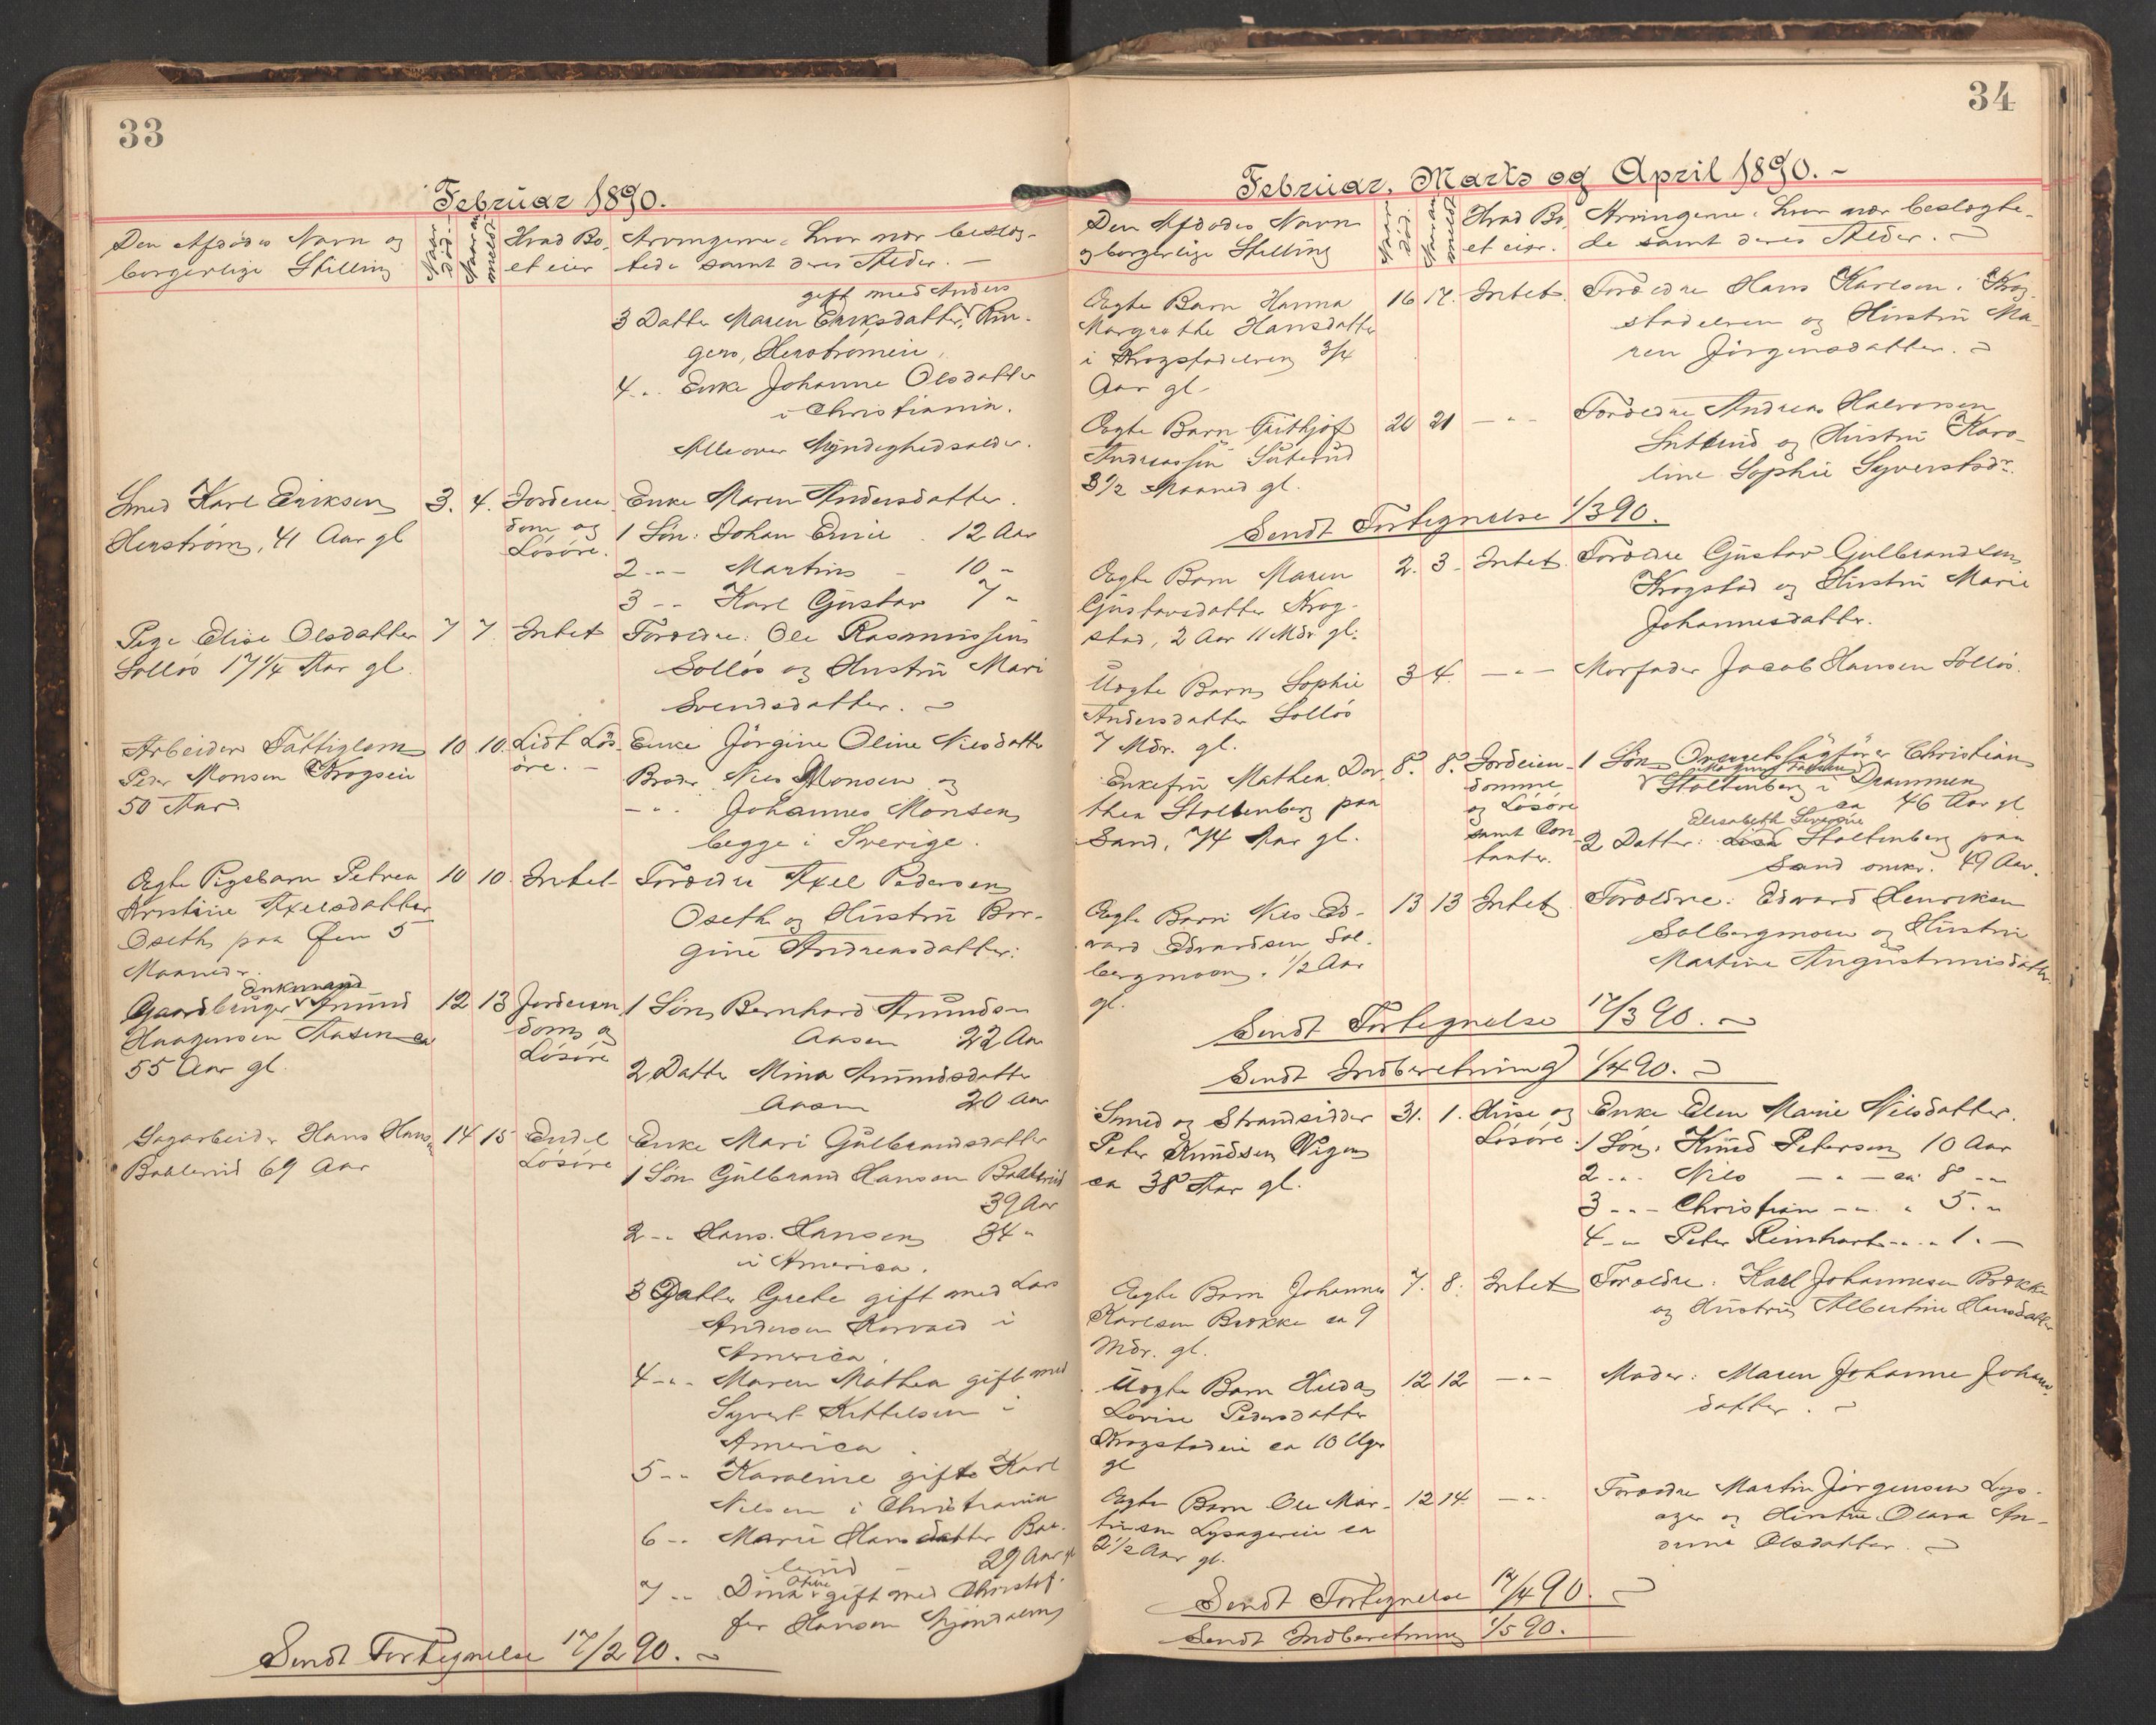 33
Februar 1890.
Den Afdødes Navn og
borgerlige Stilling
Naar
død.
Naar an-
meldt.
Hvad Bo-
et eier
Arvingerne, hvor nær beslæg-
tede samt deres Alder. -
gift med Anders
3 Datter Maren Eriksdatter,
4 -"- Enke Johanne Olsdatter
i Christiania.
Alle over Myndighedsalder.
Smed Karl Eriksen
Herstrøm, 41 Aar gl
3. 4. Jordeien-
dom og
Løsøre.
Enke Maren Andersdatter.
1 Søn: Johan 12 Aar
2 -"- Martin - 10 "
3 -"- Karl Gustav 7 "
Pige Elise Olsdatter
Solløs 17 1/4 Aar gl.
7 7. Intet
Forældre: Ole Rasmussen
Solløs og Hustru Mari
Svendsdatter.
Arbeider Fattiglem
Peder Monsen Krogseie
50 Aar.
10 10. Lidt Løs-
øre. -
Enke Jørgine Oline Nilsdatter
Broder Nils Monsen og
-"- Johannes Monsen
begge i Sverige.
Ægte Pigebarn Petrea
Kristine Axelsdatter
Oseth paa Øen 5
Maaneder.
10 10. Intet
Forældre Axel Pedersen
Oseth og Hustru Bor-
gine Andreasdatter.
Enkemand
Gaardbruger Amund
Haagensen Aasen ca
55 Aar gl.
12 13 Jordeien-
dom og
Løsøre
1 Søn Bernhard Amundsen
Aasen 22 Aar
2 Datter Mina Amundsdatter
Aasen 20 Aar
Sagarbeider Hans Hansen
Bablerud 69 Aar
14 15 Endel
Løsøre
Enke Mari Gulbrandsdatter
1 Søn Gulbrand Hansen Bablerud
39 Aar
2 -"- Hans Hansen 34 "
i America.
3 Datter Grethe gift med Lars
Andersen Korvald i
America.
4 -"- Maren Mathea gift med
Syvert Kittelsen i
America.
5 -"- Karoline gift Karl
Nilsen i Christiania
6 -"- Marie Hansdatter Bab-
lerud - 29 Aar gl
7 -"- Dina gift med Christof-
fer Hansen Mjøndalen
Sendt Fortegnelse 17/2 90.
34
Februar, Marts og April 1890. -
Den Afdødes Navn
og borgerlige Stilling
Naar
død.
Naar an-
meldt.
Hvad Bo-
et eier.
Arvingerne, hvor nær beslægte-
de samt deres Alder.
Ægte Barn Hanna
Margrethe Hansdatter
i Krogstadelven 3/4
Aar gl.
16 17. Intet.
Forældre Hans Karlsen i Krog-
stadelven og Hustru Ma-
ren Jørgensdatter.
Ægte Barn Frithjof
Andreassen
3 1/2 Maaned gl.
20 21 -"-
Forældre Andreas Halvorsen
og Hustru Karo-
line Sophie Syversdtr.
Sendt Fortegnelse 1/3 90.
Ægte Barn Maren
Gustavsdatter Krog-
stad, 2 Aar 11 Mdr gl.
2. 3. Intet.
Forældre Gustav Gulbrandsen
Krogstad og Hustru Marie
Johannesdatter.
Uægte Barn Sophie
Andersdatter Solløs
7 Mdr. gl.
3 4. -"-
Morfader Jacob Hansen Solløs.
Enkefru Mathea Dor-
thea Stoltenberg paa
Sand, 74 Aar gl.
8. 8. Jordeien-
domme
og Løsøre
samt Con-
tanter.
1 Søn Overretssagfører Christian
Stoltenberg i Drammen
ca 46 Aar gl
Elisabeth Severine
2 Datter: Lisa Stoltenberg paa
Sand omkr. 49 Aar.
Ægte Barn Nils Ed-
vard Edvardsen Sol-
bergmoen, 1/2 Aar
gl.
13 13 Intet
Forældre: Edvard Henriksen
Solbergmoen og Hustru
Martine Augustinusdatter.
Sendt Fortegnelse 17/3 90.
Sendt Indberetning 1/4 90.
Smed og Strandsidder
Peter Knudsen Vigen
ca 38 Aar gl.
31. 1. Huse og
Løsøre.
Enke Elen Marie Nilsdatter.
1 Søn, Knud Petersen 10 Aar
2 -"- Nils -"- ca 8 -"-
3 -"- Christian -"- " 5. "
4 -"- Peter Reinhart -"- " 1. -
Ægte Barn Johannes
Karlsen Brække ca 9
Mdr. gl.
7. 8. Intet
Forældre: Karl Johannesen Brække
og Hustru Albertine Hansdatter
Uægte Barn Hilda
Lovise Pedersdatter
Krogstadeie ca 10 Uger
gl
12 12 -"-
Moder: Maren Johanne Johans-
datter.
Ægte Barn Ole Mar-
tinsen Lysagereie ca
2 1/2 Aar gl.
12 14. -"-
Forældre Martin Jørgensen Lys-
ager og Hustru Olava An-
drine Olsdatter.
Sendt Fortegnelse 17/4 90.
Sendt Indberetning 1/5 90.